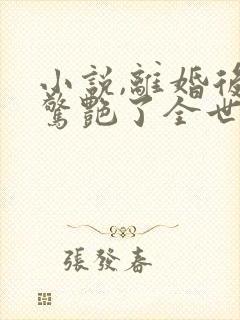 小說,離婚後
驚艷了全世
張發春